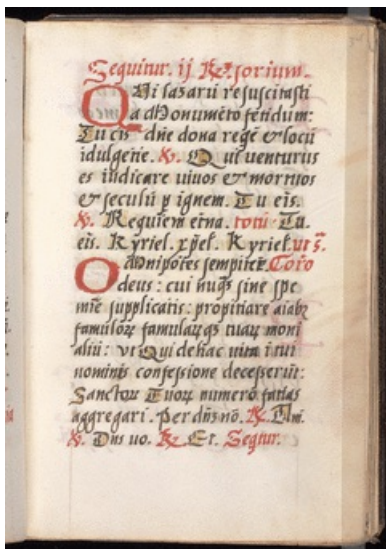 Sequitur. ij R. sorium.
Qui lazarū resuscitasti
a Monumēto fetidum:
Tu eis dn̄e dona regē & locū
īdulgētie. V. Qui venturus
es iudicare viuos & mortuos
& seculū p ignem. Tu eīs.
V. Requiem etna. totū Tu.
eis. Kyriel. xp̄el. Kyriel. vr̄s.
Omnipotēs sempiterē
deus: cui nūq̄ sine spe
mīe supplicatis: propitiare aīabꝫ
famuloꝝ famulaꝝqꝫ tuaꝝ moni
aliū: vt Qui de hac uita ī tui
nominis confessione decesserūt:
Sanctoꝝ Tuoꝝ numerō facias
aggregari. Per dn̄m nō. R. Am.
V. Dn̄s uo. R. Et. Seqtur.